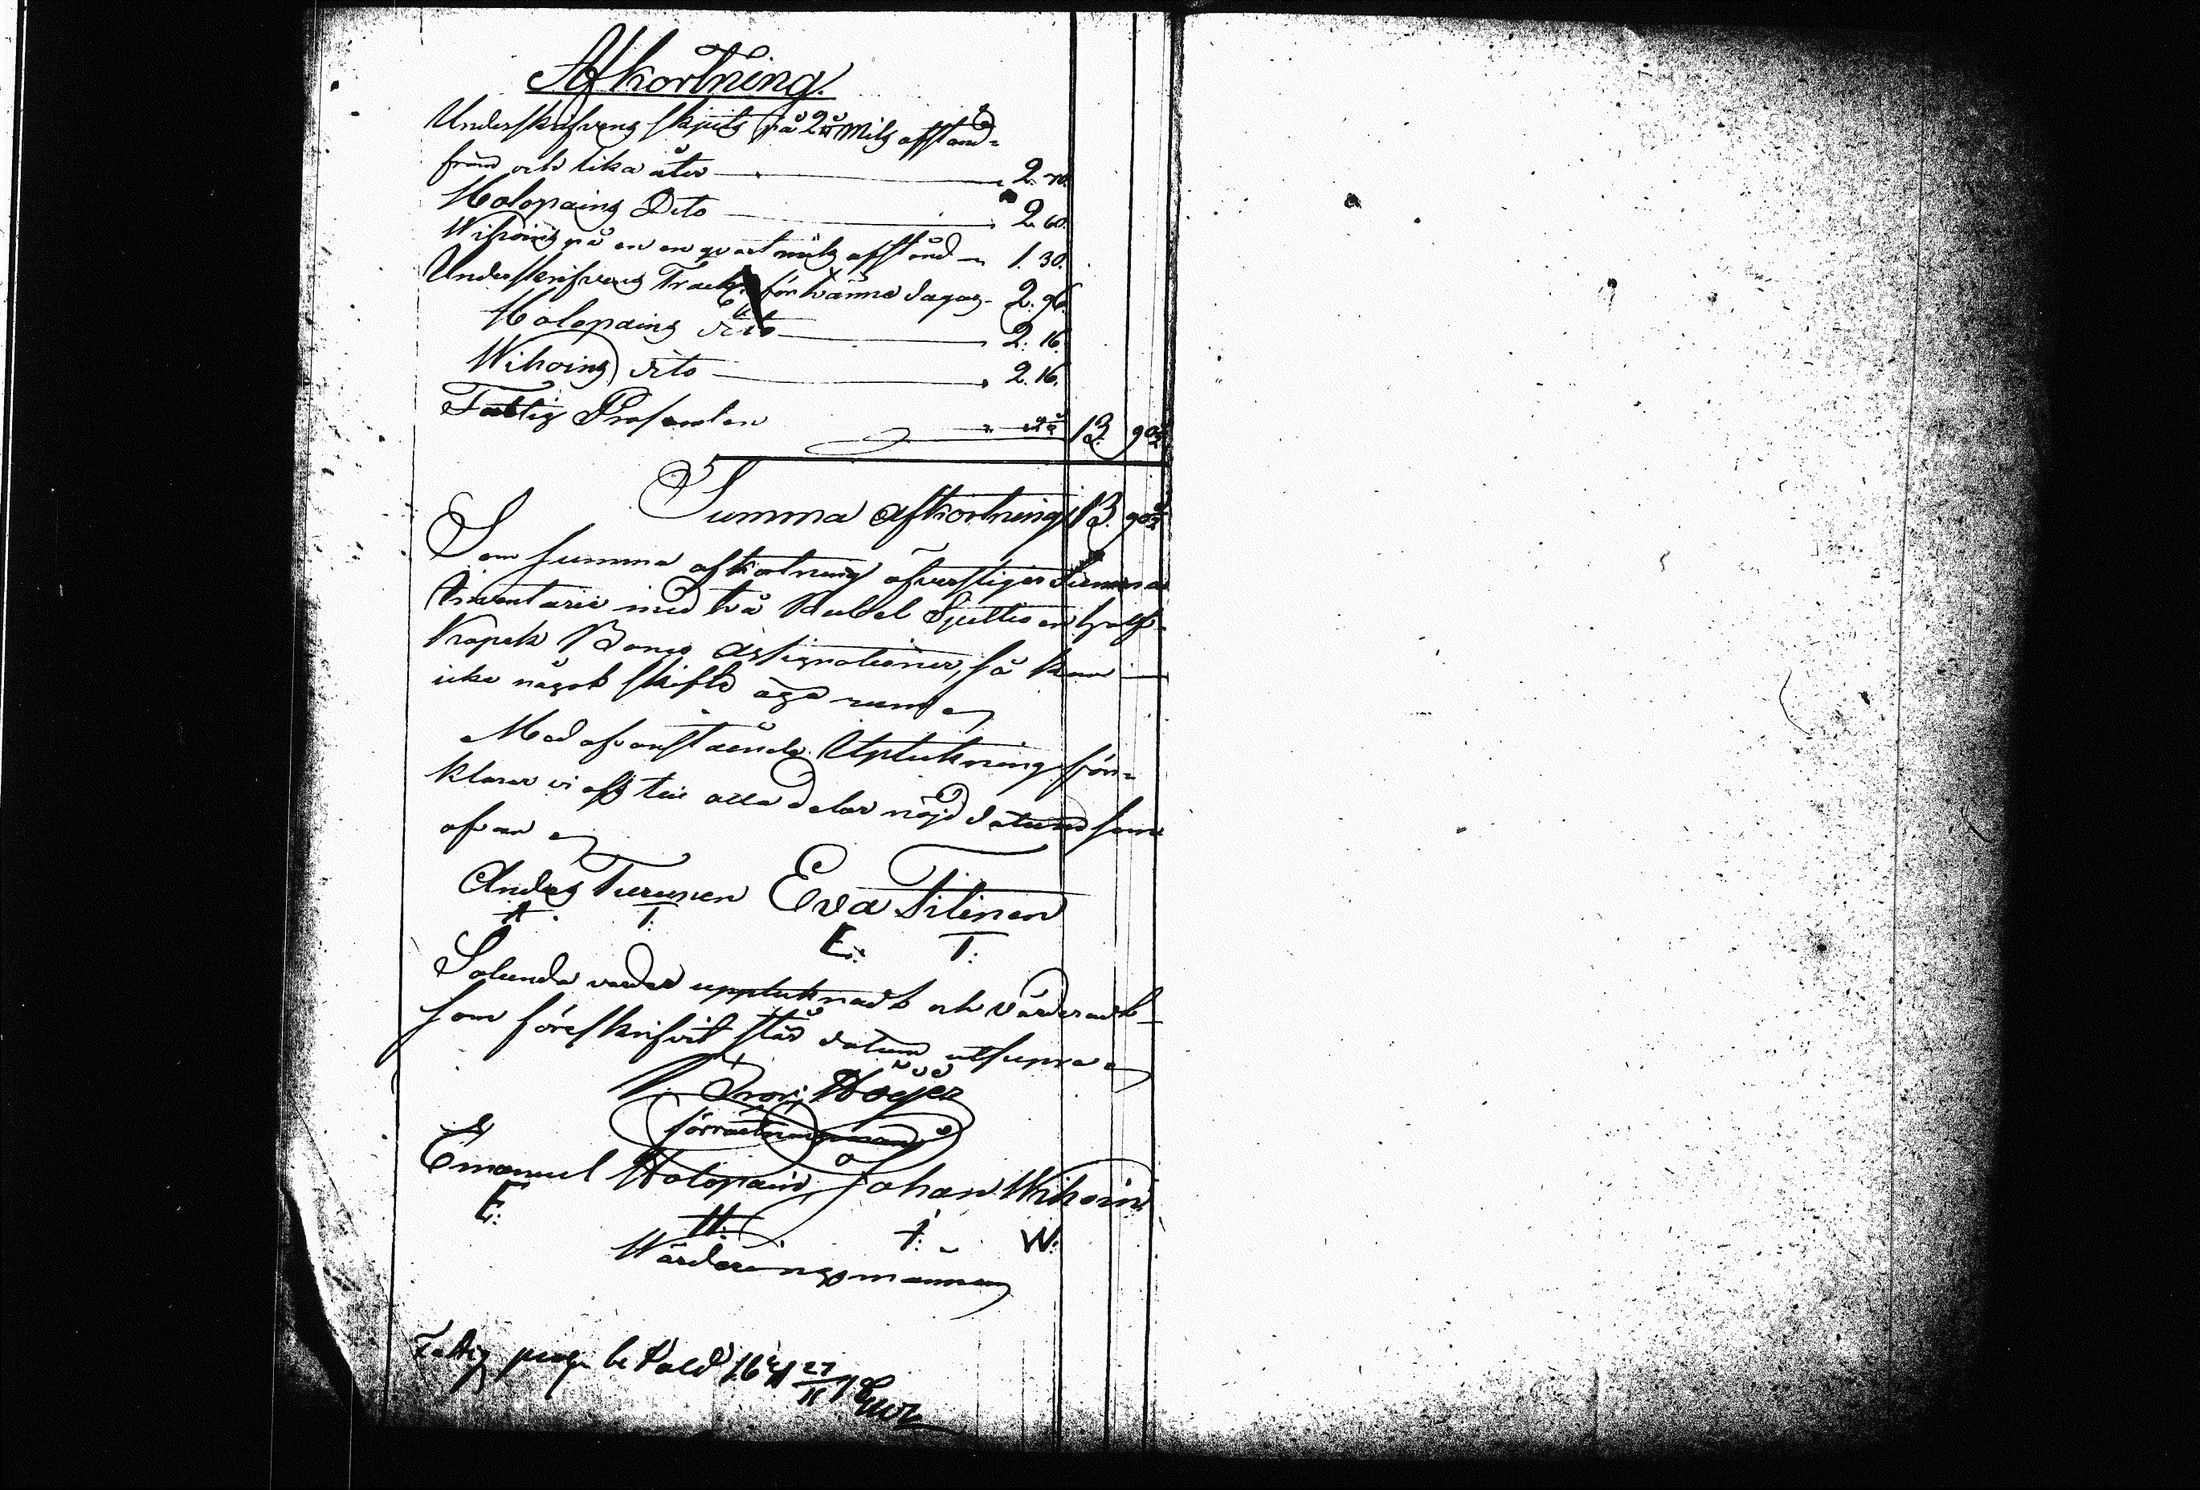 Afkortning.
Underskrifvens skjuts på 2¼ Mils afstånd
fram och lika åter 2. 70.
Holopains Dito 2. 60.
Wihoins på en en qvart mils afstånd 1. 30.
Underskrifvens Tract: för tvänne dagar 2. 96.
Holopains dito 2. 16.
Wihoins dito 2. 16.
Fattig Prosenten 13. 90½
Summa afkortning 13. 90½
Som summa afkortning öfverstiger Summa
Inventarii med två Rubel Sjuttio en half
Kopek Banco Assignationer, så kan
icke något skifte äga rum
Med ofvanstående Uptekning för=
klarar vi oss till alla delar nöjd datum som
ofvan
Anders Turunen Eva Tilinen
A. T: E: T:
Solunda vardet upptecknadt och värderadt
som föreskrifvit står datum utsupra
Höijer
förrättningsman
Emanuel Holopain, Johan Wihoin
E: H: J: W:
Wärderingsmannen
Fattig betald 27/11